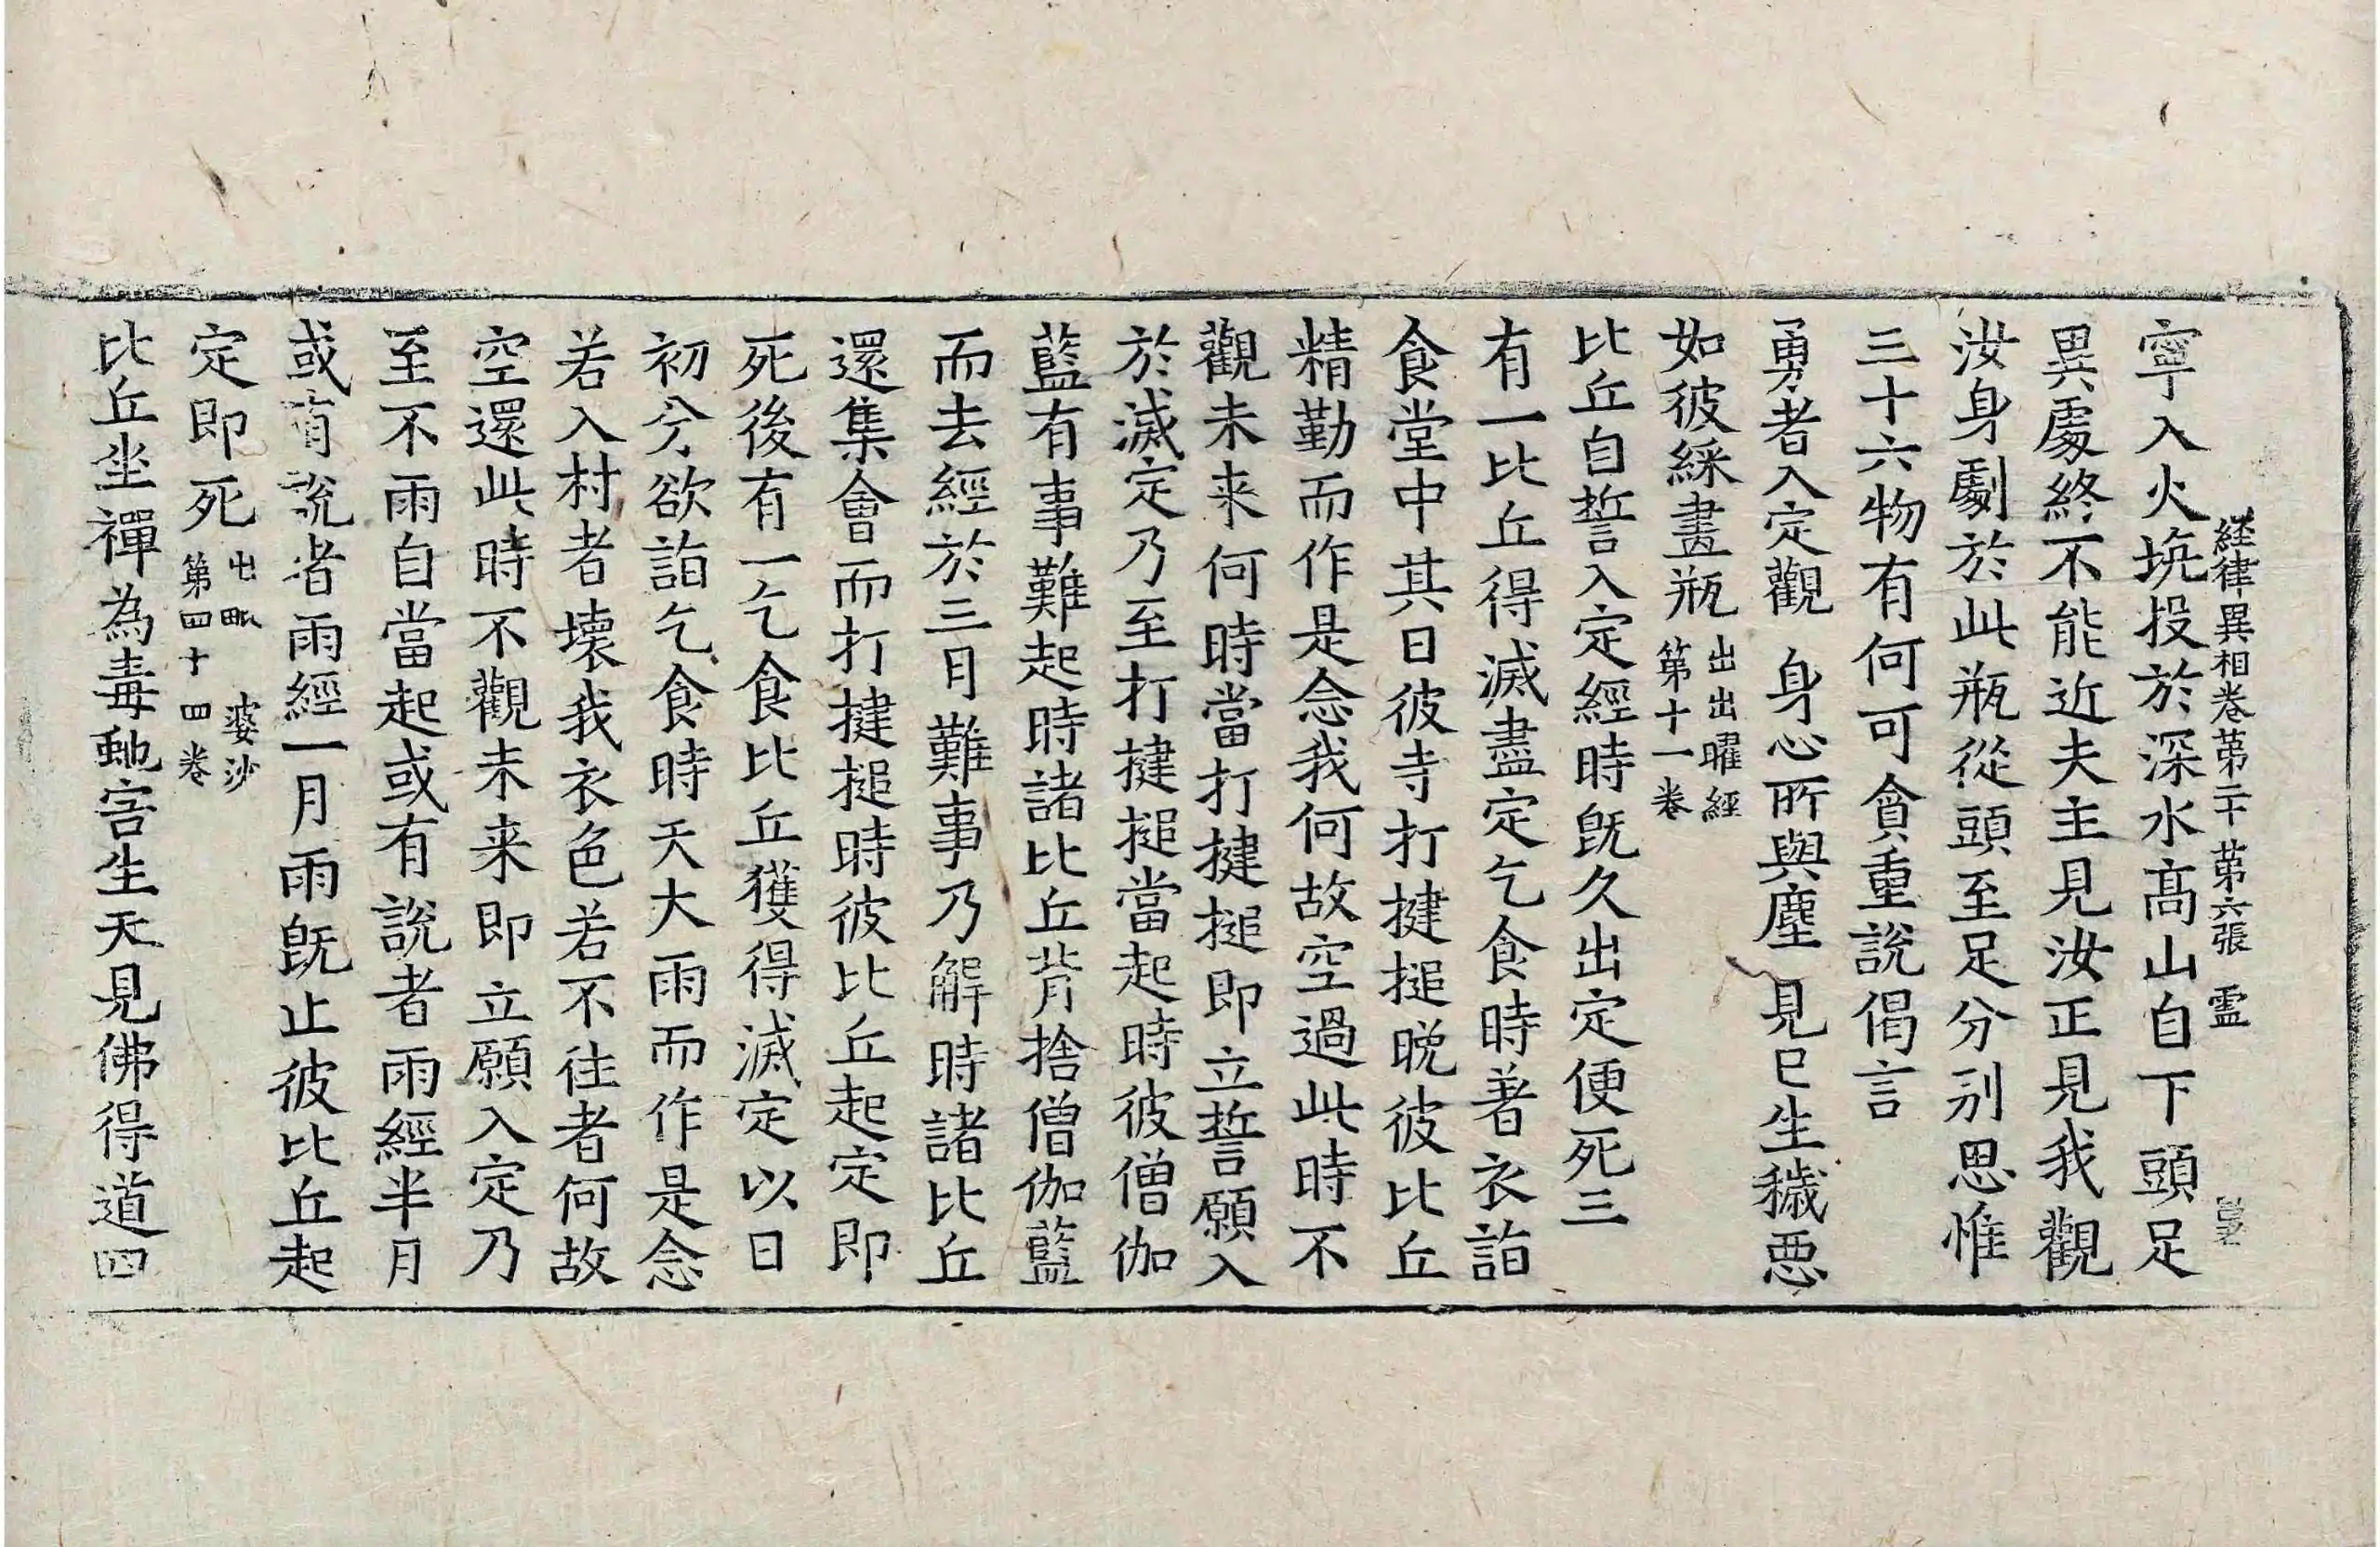 経律異相卷第二十 第六張 䨩
寧入火坑投於深水髙山自下頭足
異處終不能近夫主見汝正見我觀
汝身劇於此瓶從頭至足分別思惟
三十六物有何可貪重說偈言
勇者入定觀 身心所與塵 見已生穢惡
如彼綵畫瓶 出出曜經第十一卷
比丘自誓入定經時旣久出定便死三
有一比丘得滅盡定乞食時著衣詣
食堂中其日彼寺打揵搥晚彼比丘
精勤而作是念我何故空過此時不
觀未来何時當打揵搥即立誓願入
於滅定乃至打揵搥當起時彼僧伽
藍有事難起時諸比丘背捨僧伽藍
而去經於三月難事乃解時諸比丘
還集會而打揵搥時彼比丘起定即
死後有一乞食比丘獲得滅定以日
初分欲詣乞食時天大雨而作是念
若入村者壞我衣色若不往者何故
空還此時不觀未来即立願入定乃
至不雨自當起或有說者雨經半月
或有說者雨經一月雨旣止彼比丘起
定即死 出毗婆沙第四十四卷
比丘坐禪為毒虵害生天見佛得道四